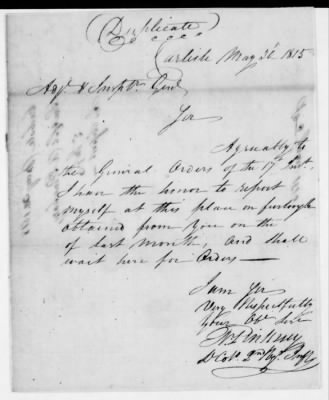 (Duplicate)
Carlisle May 26 1815
Adjt & Insptr Genl
Sir
Agreeably to
the General Orders of the 17th Inst.
I have the honor to report
myself at this place on furlough
obtained from You on the
of last month, and shall
wait here for Orders—
I am Sir
Very Respectfully
Your Obt Sert